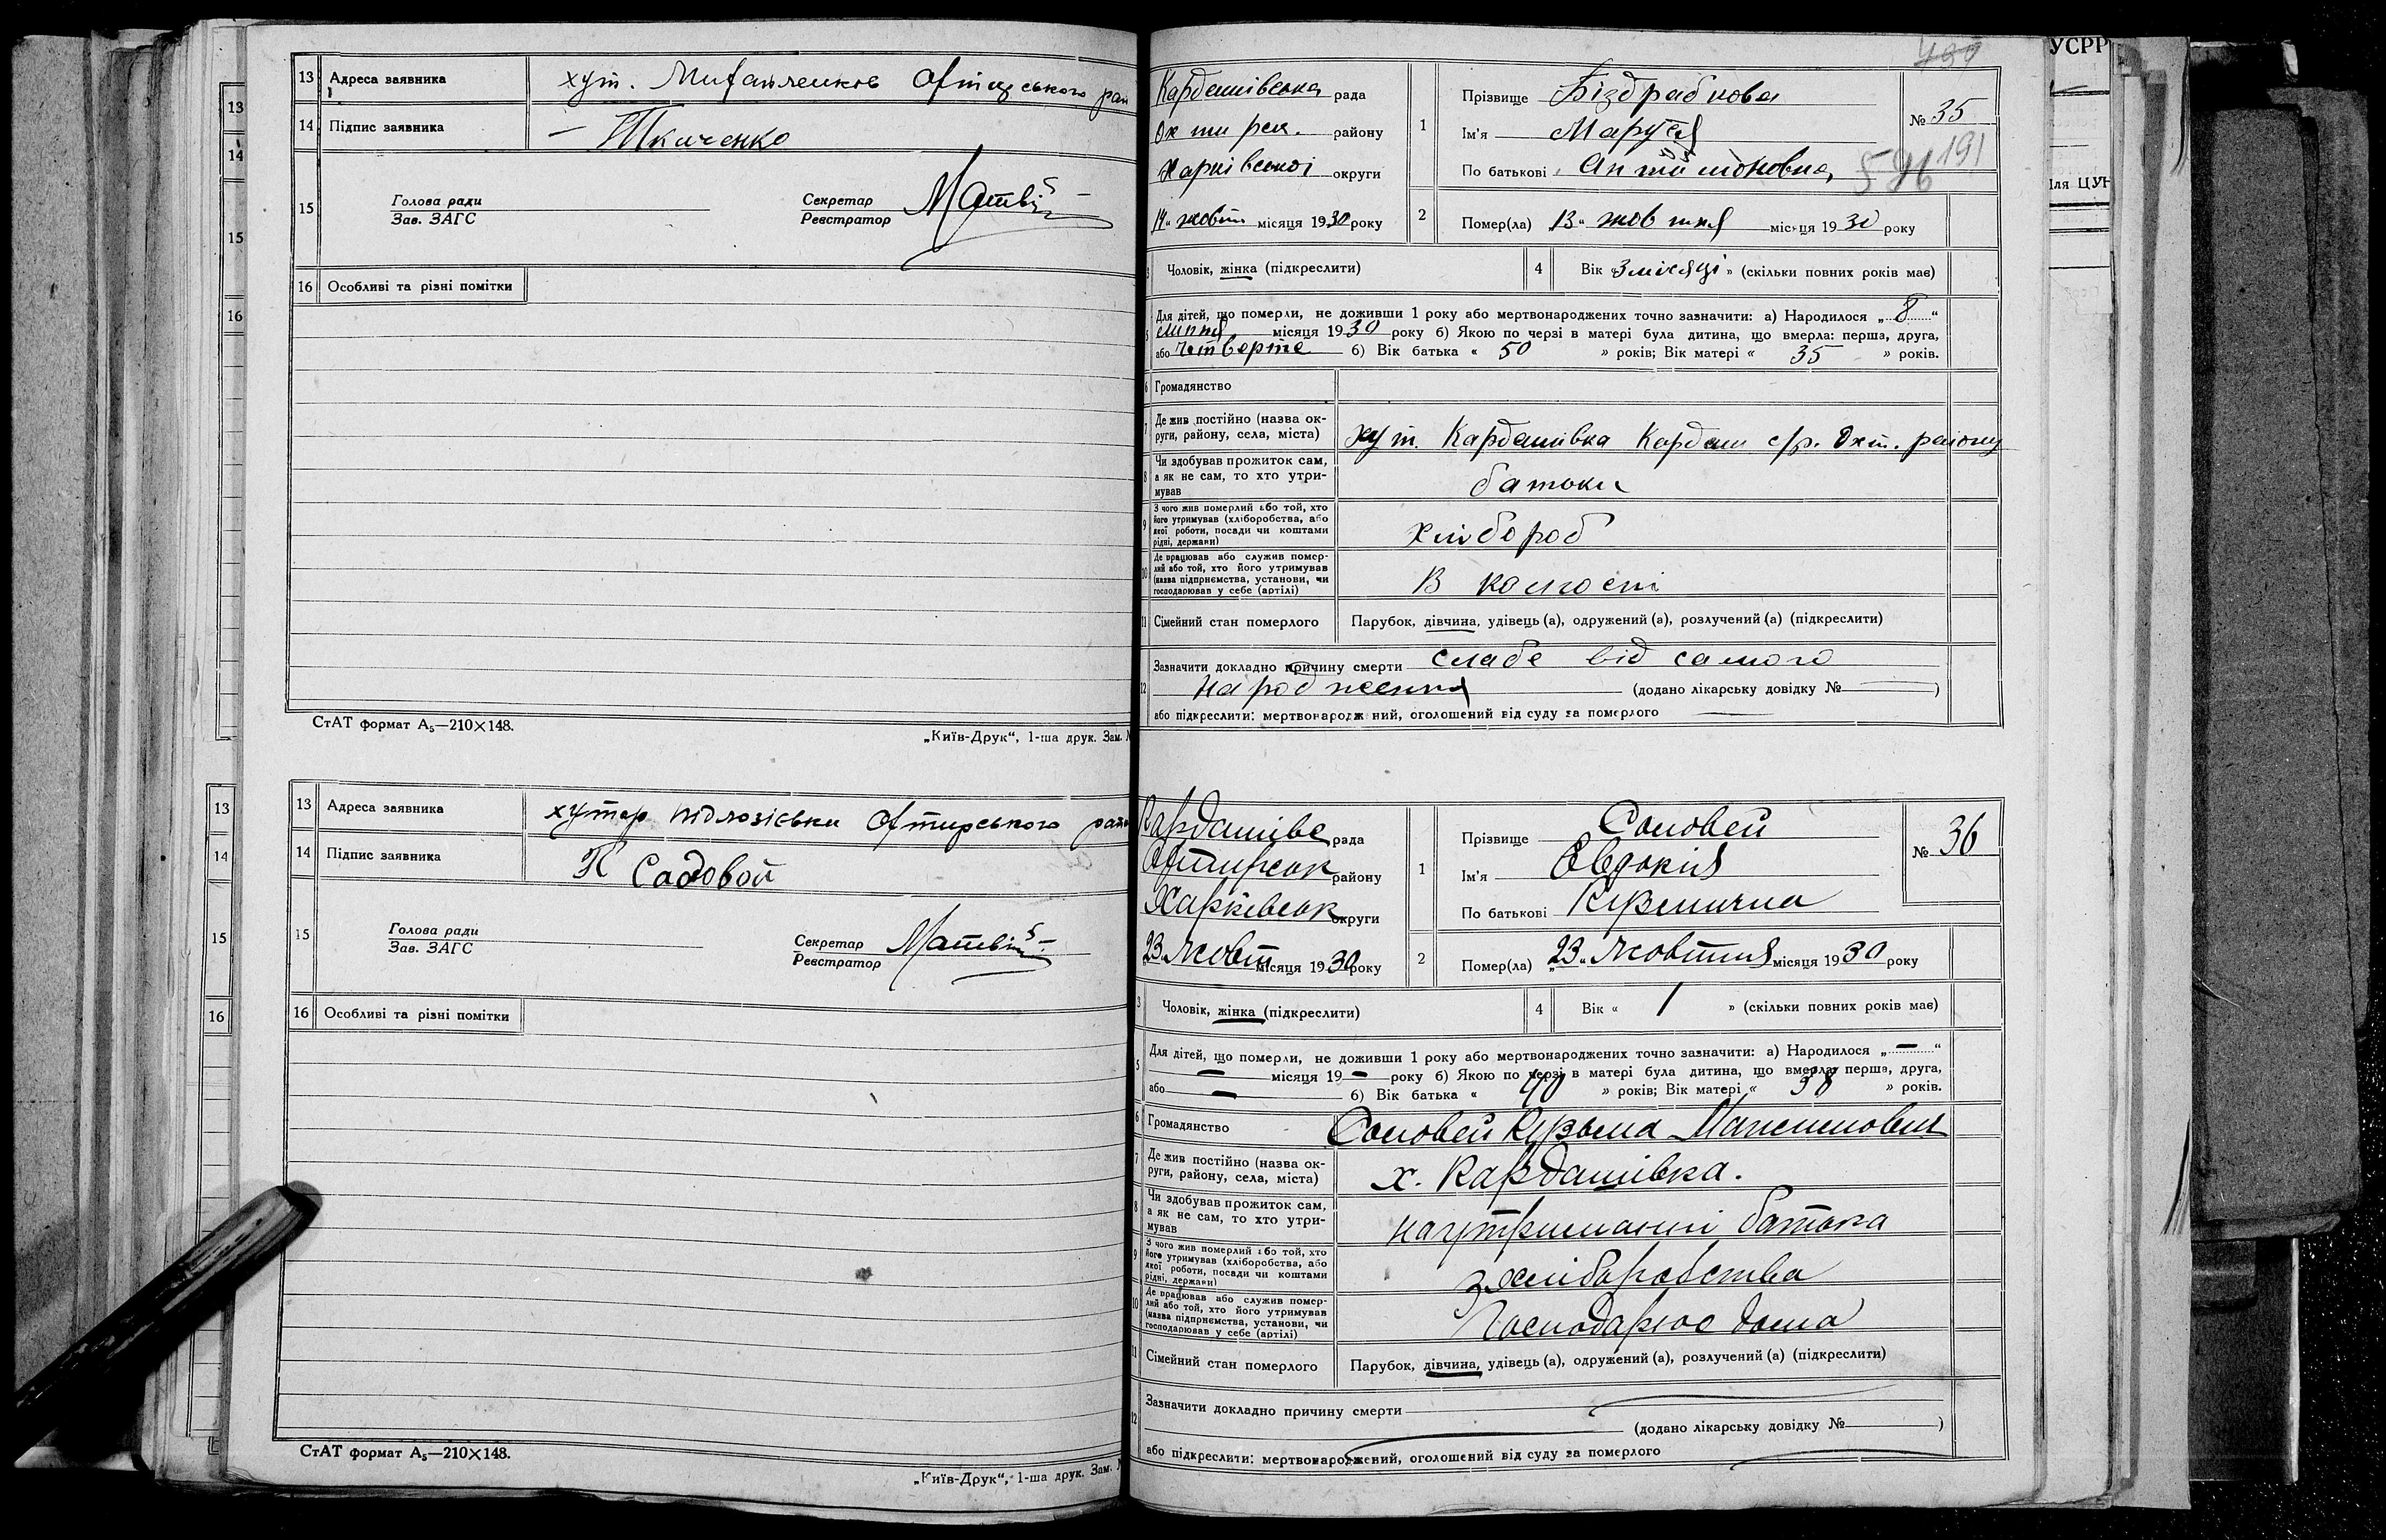 13 Адреса заявника хут. Михайленков Охтирського рай
14 Підпис заявника — Ткаченко
15 Голова ради
Зав. ЗАГС
Секретар
Реєстратор Матвієн
16 Особливі та різні помітки
СтАТ формат А5—210×148.
„Київ-Друк“, 1-ша друк. Зам.
13 Адреса заявника хутор Підлозіївки Охтирського рай
14 Підпис заявника П Садовой
15 Голова ради
Зав. ЗАГС
Секретар
Реєстратор
16 Особливі та різні помітки
СтАТ формат А5—210×148.
„Київ-Друк“, 1-ша друк. Зам.
Кардашівська рада
району
Харківської округи
жовтн місяця 1930 року
1 Прізвище
Ім'я Маруся
По батькові
№ 35
191
2 Помер(ла) „13“ жовтня місяця 1930 року
3 Чоловік, жінка (підкреслити)
4 Вік «3 місяці» (скільки повних років має)
5 Для дітей, що померли, не доживши 1 року або мертвонароджених точно зазначити: а) Народилося „8“
липня місяця 1930 року б) Якою по черзі в матері була дитина, що вмерла: перша, друга,
або четверте б) Вік батька « 50 » років; Вік матері « 35 » років.
6 Громадянство
7 Де жив постійно (назва ок-
руги, району, села, міста) хут. Кардашівка Кардаш с/р. Охт. району
8 Чи здобував прожиток сам,
а як не сам, то хто утри-
мував батьки
9 З чого жив померлий або той, хто
його утримував (хліборобства, або
якої роботи, посади чи коштами
рідні, держави) хлібороб
10 Де працював або служив помер-
лий або той, хто його утримував
(назва підприємства, установи, чи
господарював у себе (артілі) В колгоспі
11 Сімейний стан померлого Парубок, дівчина, удівець (а), одружений (а), розлучений (а) (підкреслити)
12 Зазначити докладно причину смерти слабе від самого
народження (додано лікарську довідку № )
або підкреслити: мертвонароджений, оголошений від суду за померлого
Кардашівс рада
Охтирськ району
Харківськ округи
„23“ Жовтн місяця 1930 року
1 Прізвище Соловей
Ім'я Евдокия
По батькові Кузьминична
№ 36
2 Помер(ла) „23“ Жовтня місяця 1930 року
3 Чоловік, жінка (підкреслити)
4 Вік « 1 » (скільки повних років має)
5 Для дітей, що померли, не доживши 1 року або мертвонароджених точно зазначити: а) Народилося „—“
— місяця 19 — року б) Якою по черзі в матері була дитина, що вмерла: перша, друга,
або — б) Вік батька « 40 » років; Вік матері « 38 » років.
6 Громадянство Соловей Кузьма Максимович
7 Де жив постійно (назва ок-
руги, району, села, міста) х. Кардашівка.
8 Чи здобував прожиток сам,
а як не сам, то хто утри-
мував на утриманні батька
9 З чого жив померлий або той, хто
його утримував (хліборобства, або
якої роботи, посади чи коштами
рідні, держави) з хліборобства
10 Де працював або служив помер-
лий або той, хто його утримував
(назва підприємства, установи, чи
господарював у себе (артілі) Господарює дома
11 Сімейний стан померлого Парубок, дівчина, удівець (а), одружений (а), розлучений (а) (підкреслити)
12 Зазначити докладно причину смерти
(додано лікарську довідку № )
або підкреслити: мертвонароджений, оголошений від суду за померлого
УСРР
13
14
15
16
13
14
15
16